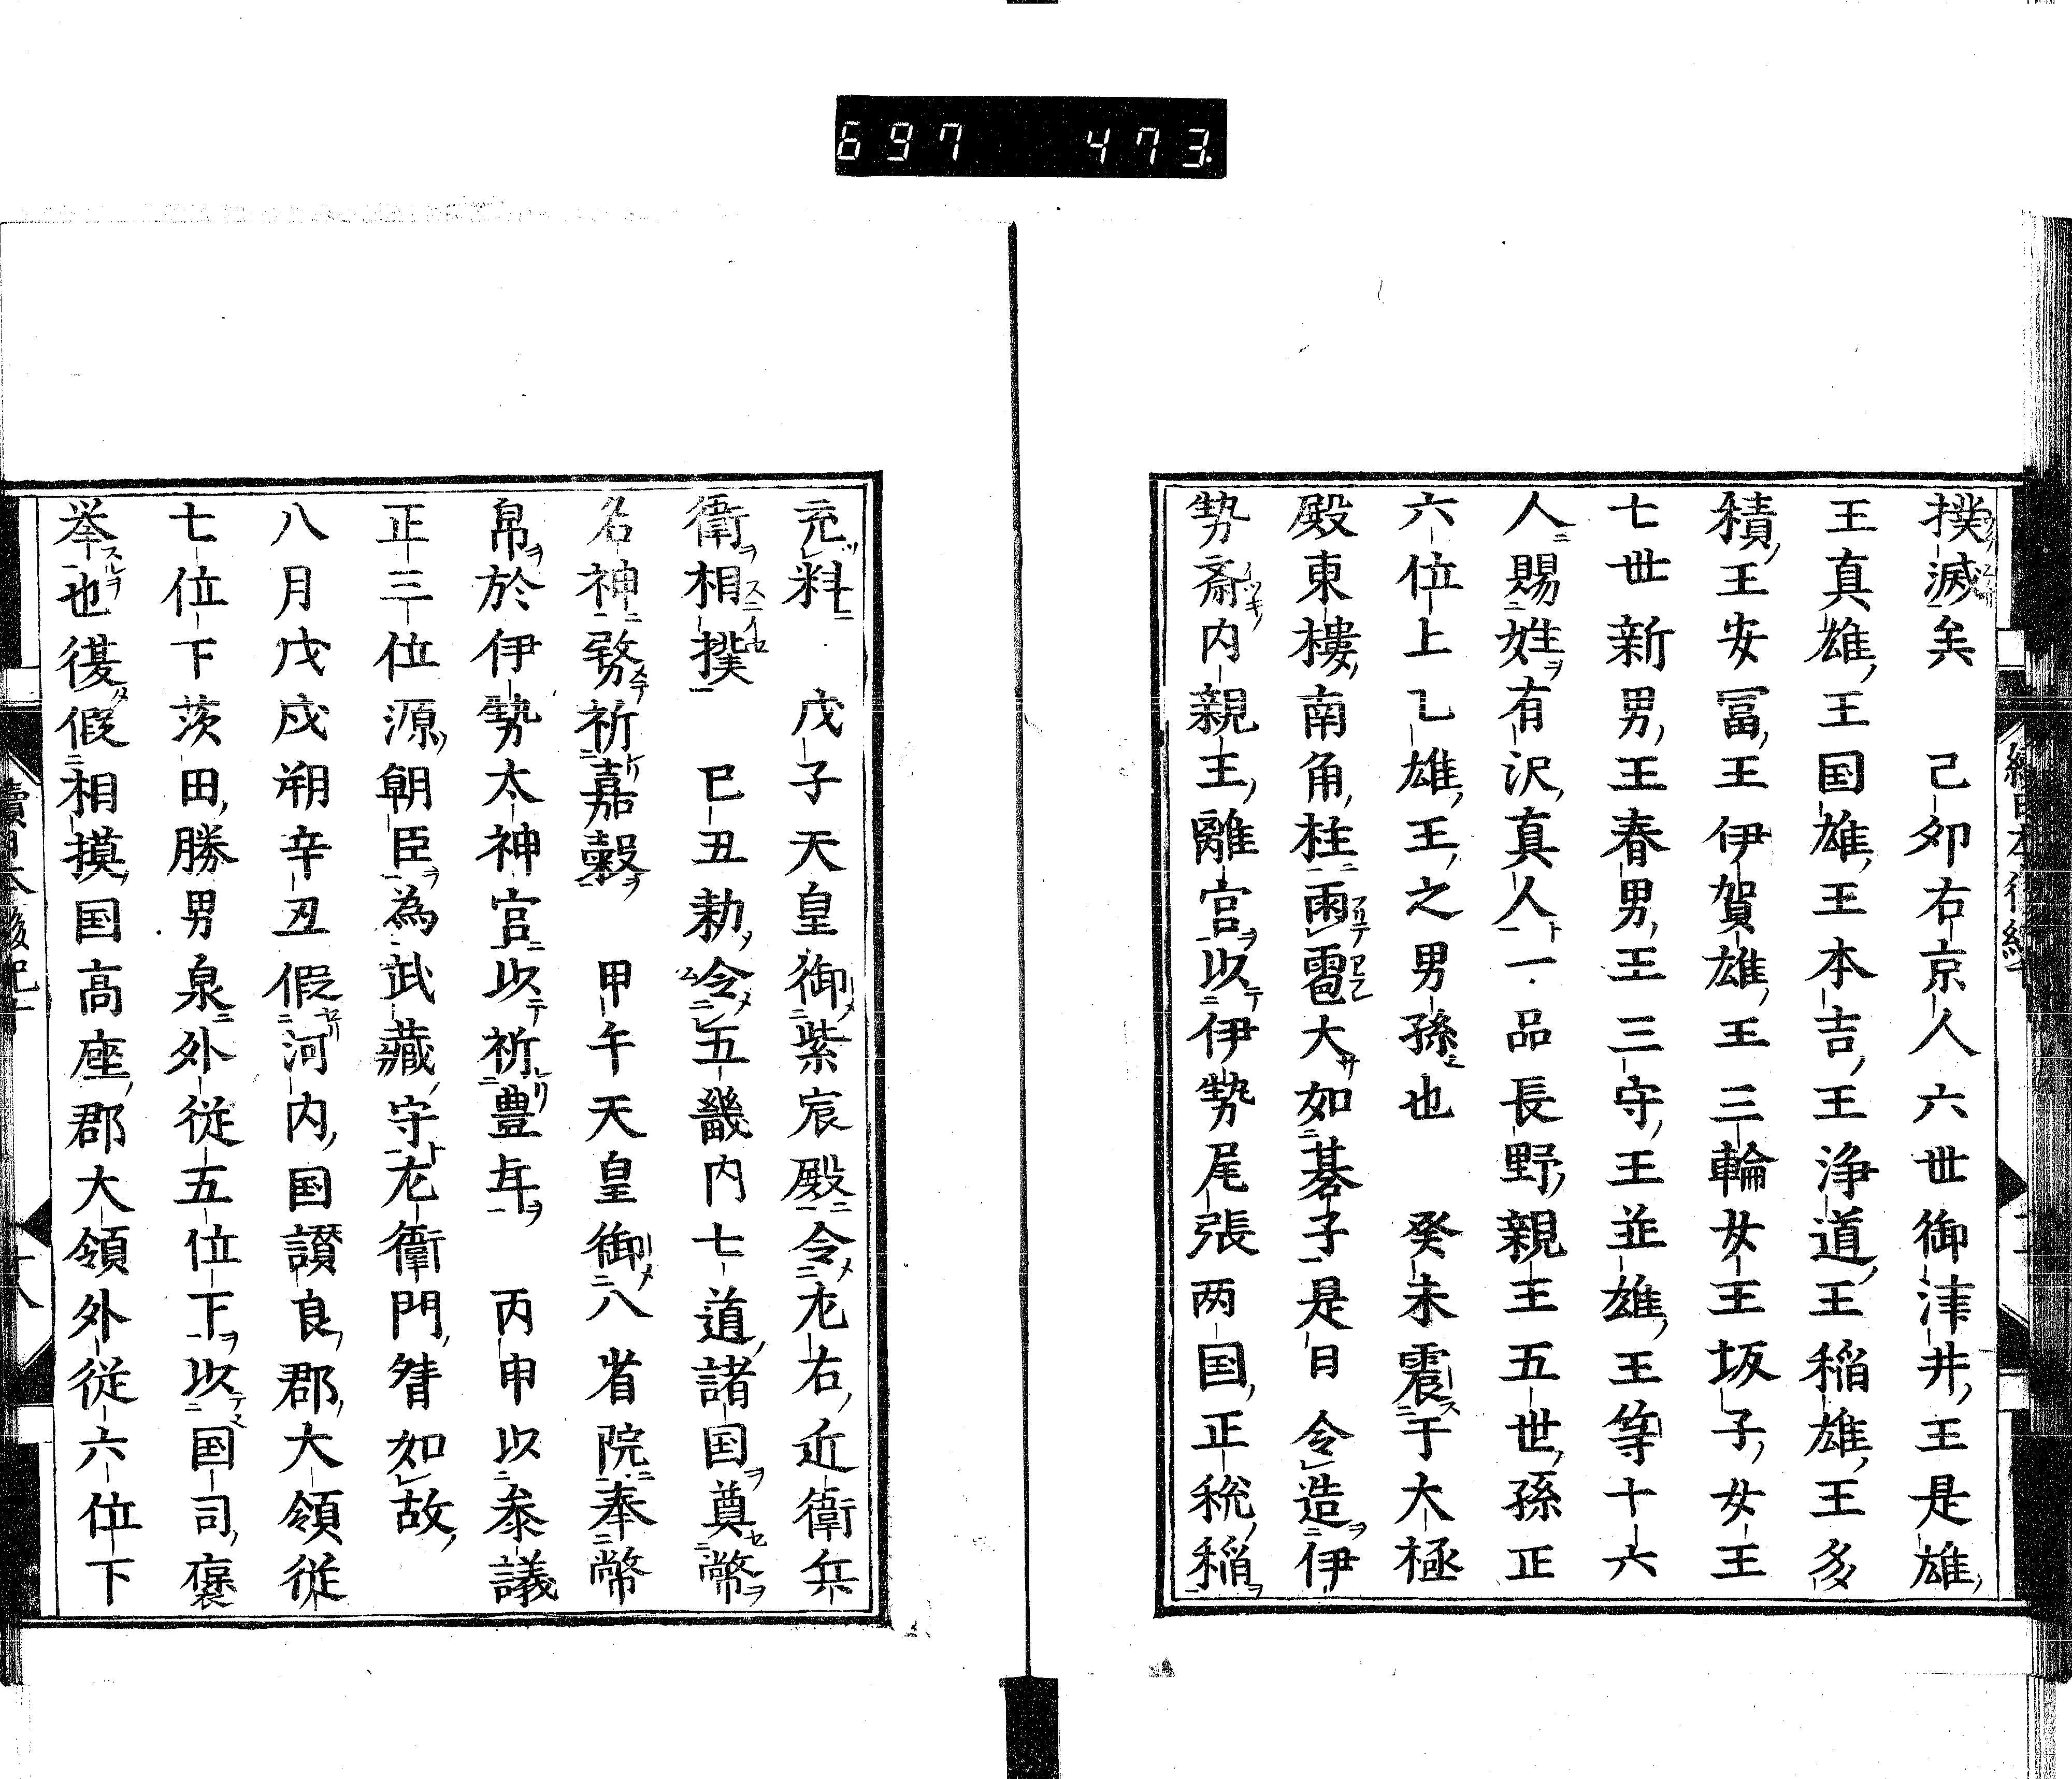 697 473.
撲滅矣 己卯右京人六世御津井王是雄
王真雄王国雄王本吉王浄道王稲雄王多
積王安冨王伊賀雄王三輪女王坂子女王
七世新男王春男王三守王並雄王等十六
人賜姓有沢真人一品長野親王五世孫正
六位上乙雄王之男孫也 癸未震于大極
殿東樓南角柱雨雹大如碁子是日令造伊
勢斎内親王離宮以伊勢尾張两国正税稲
充料 戊子天皇御紫宸殿令左右近衛兵
衛相撲 己丑勅令五畿内七道諸国奠幣
名神務祈嘉穀 甲午天皇御八省院奉幣
帛於伊勢太神宮以祈豊年 丙申以参議
正三位源朝臣為武藏守左衛門督如故
八月戊戌朔辛丑假河内国讃良郡大領従
七位下茨田勝男泉外従五位下以国司褒
举也復假相摸国高座郡大領外従六位下
續日本後紀十
十八